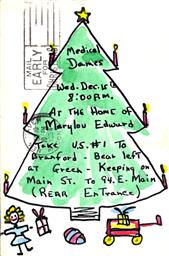 MAIL
EARLY
FOR
CHRISTMAS
Medical
Dames
Wed. Dec. 15th
8:00 P.M.
At The Home of
Marylou Edward
Take U.S. #1 To
Branford - Bear left
at Green - Keeping on
Main St. To 94 E. Main
(Rear Entrance)